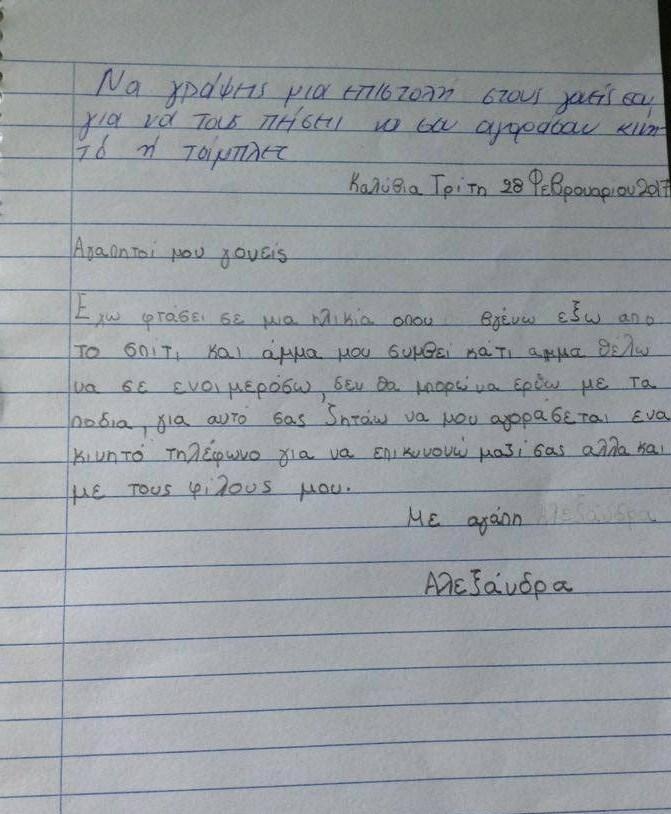 Να γράψεις μια επιστολή στους γονείς σου,
για να τους πήσει να σου αγοράσουν κινη-
τό ή τάμπλετ
Καλύθια Τρίτη 28 Φεβρουαριου 2017
Αγαπητοί μου γονείς
Εχω φτάσει σε μια ηλικία οπου βγένω εξω απο
το σπίτι και άμμα μου συμθει κάτι αμμα θέλω
να σε ενοιμερόσω, δεν θα μπορώ να ερθω με τα
ποδια, για αυτό σας ζητάω να μου αγοράσεται ενα
κινητό τηλέφωνο για να επικυνονώ μαζί σας αλλα και
με τους φιλους μου.
Με αγάπη Αλεξάνδρα
Αλεξάνδρα